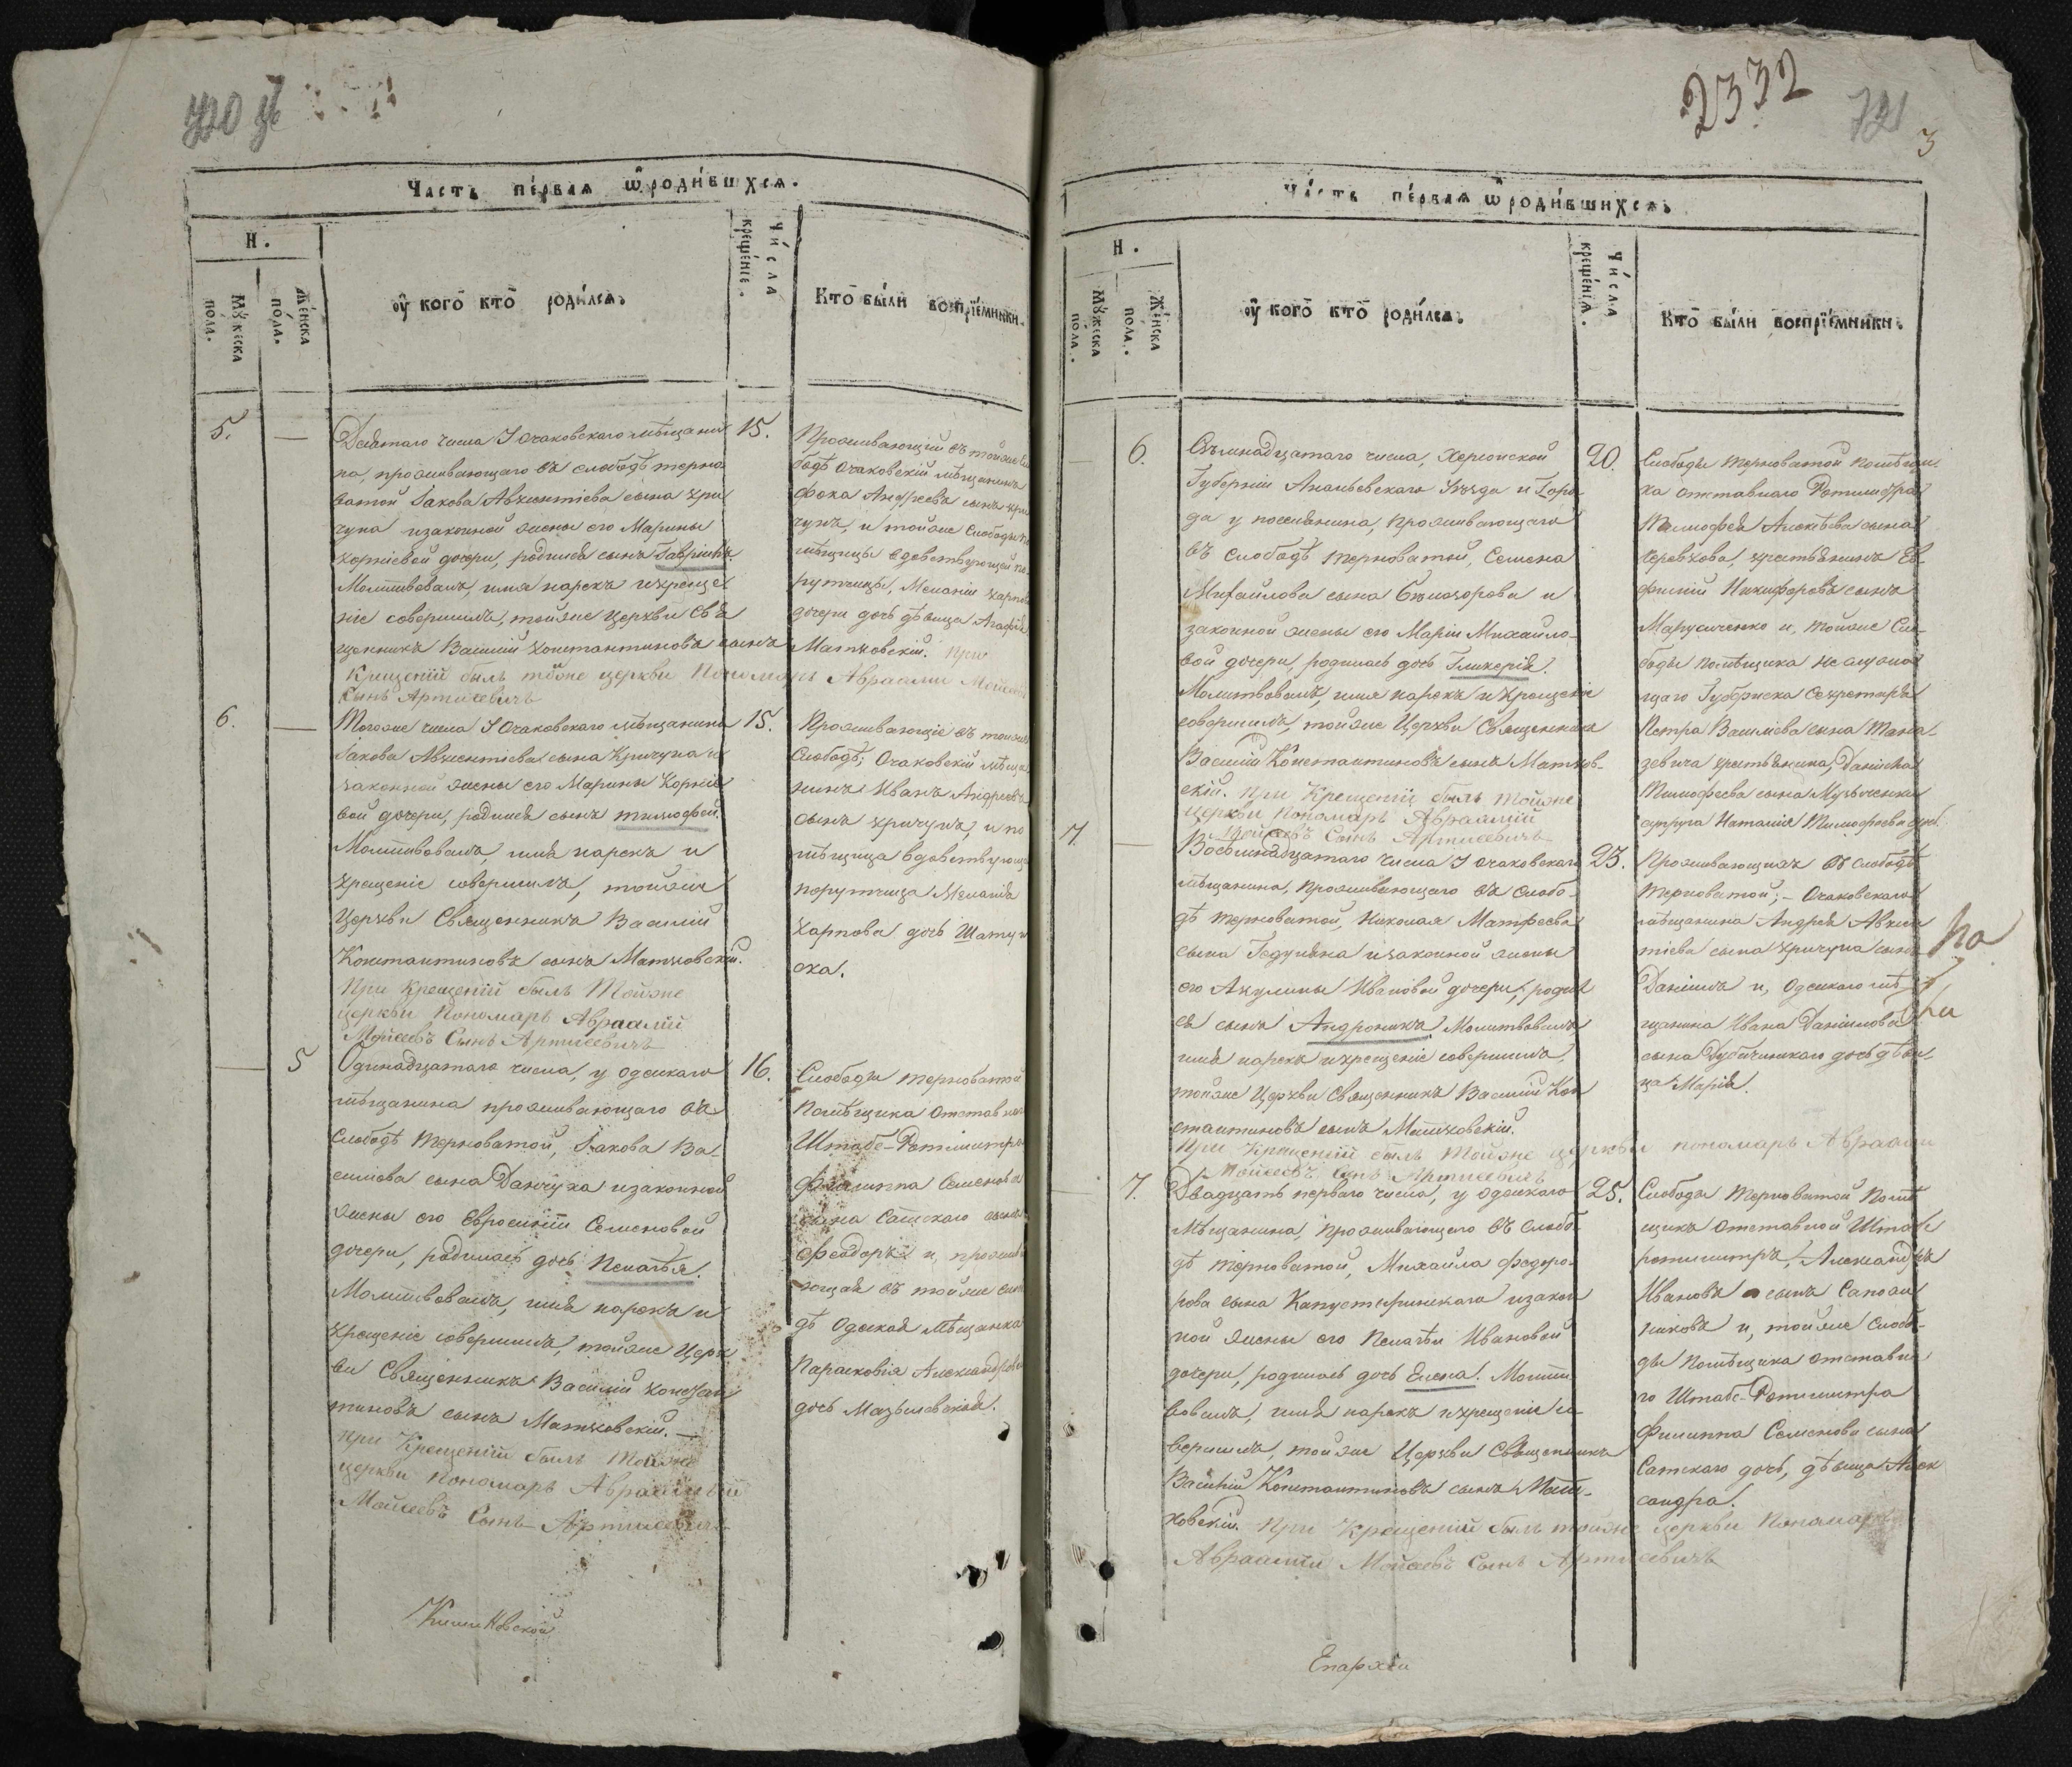 Часть пе́рвая ѡ҆ роди́вшихся.
Н.
Мꙋ́жеска пола.
Же́нска по́ла.
оу҆ кого̀ кто̀ роди́лся.
Чи́сла креще́нїѧ.
Кто̀ бы́ли воспрїе́мники.
5.
—
Девятаго числа У очаковскаго мѣщани
на, проживающаго въ слободѣ терно
ватой Іакова Авксентіева сына Кри
чуна и законной жены его Марины
Корніевой дочери, родился сынъ Гавріилъ.
Молитвовалъ, имя нарекъ и креще
ніе совершилъ, тойже церкви Свя
щенникъ Василій Константиновъ сынъ
Матковскій. При
Крещеній былъ тойже церкви Пономарь Авраамій Моисеевъ
Сынъ Артисевичъ
15.
Проживающій въ тойже Сло
бодѣ Очаковскій мѣщанинъ
Фока Андреевъ сынъ Кри
чунъ, и тойже Слободы по
мѣщицы вдовствующей по
ручицы, Меланіи Карповой
дочери дочь дѣвица Агафія
6.
—
Тогоже числа У Очаковскаго мѣщанина
Іакова Авксентіева сына Кричуна и
законной жены его Марины Корніе
вой дочери, родился сынъ Тимофей.
Молитвовалъ, имя нарекъ и
крещеніе совершилъ, тойже
Церкви Священникъ Василій
Константиновъ сынъ Матковскій.
При Крещеній былъ Тойже
церкви Пономарь Авраамій
Моисеевъ Сынъ Артисевичъ
15.
Проживающіе въ тойже
Слободѣ; Очаковскій мѣща
нинъ Иванъ Андреевъ
сынъ Кричунъ, и по
мѣщица вдовствующая
поручица Меланія
Карпова дочь
ска.
—
5
Одинадцатаго числа, у одескаго
мѣщанина проживающаго въ
Слободѣ Терноватой, Іакова Ва-
силіева сына Данчука и законной
жены его Евросиніи Семеновой
дочери, родилась дочь Пелагія.
Молитвовалъ, имя нарекъ и
крещеніе совершилъ, тойже Церк
ви Священникъ Василій Констан
тиновъ сынъ Матковскій. —
При Крещеній былъ Тойже
церкви Пономарь Авраамій
Моисеевъ Сынъ Артисевичъ
16.
Слободы Терноватой
Помѣщика отставнаго
Штабс-Ротмистра
Филиппа Семенова
сына Сатскаго сынъ
Феодоръ и, прожива
ющая въ тойже слобо
дѣ Одеская мѣщанка
Парасковія Александрова
дочь Мазылевская.
Кишиневской
2332
721
3
Часть пе́рвая ѡ҆ роди́вшихся.
Н.
Мꙋ́жеска пола.
Же́нска пола.
оу҆ кого̀ кто̀ роди́лся.
Чи́сла креще́нїѧ.
Кто̀ бы́ли воспрїе́мники.
—
6.
Семнадцатаго числа, Херсонской
Губерніи Ананьевскаго Уѣзда и Горо
да у поселянина, проживающаго
въ слободѣ Терноватой, Семена
Михайлова сына и
законной жены его Маріи Михайло-
вой дочери, родилась дочь Гликерія.
Молитвовалъ, имя нарекъ и крещеніе
совершилъ, тойже Церкви Священникъ
Василій Константиновъ сынъ Матков-
скій. При Крещеній былъ Тойже
церкви Пономарь Авраамій
Моисеевъ Сынъ Артисевичъ
20.
Слободы Терноватой помѣщи
ка отставнаго Ротмистра
Тимофея Алексѣева сына
крестьянинъ Ев
фимій Никифоровъ сынъ
Марусиченко и, тойже Сло
боды помѣщика
щаго Губернска Секретаря
Петра Василіева сына
крестьянина, Даніила
Тимофеева сына
супруга Наталія Тимофеева дочь
7.
—
Восемнадцатаго числа У очаковскаго
мѣщанина, проживающаго въ слобо-
дѣ Терноватой, Николая Матфеева
сына Годуляна и законной жены
его Акулины Ивановой дочери, родил
ся сынъ Андроникъ. Молитвовалъ
имя нарекъ и крещеніе совершилъ,
тойже Церкви Священникъ Василій Кон
стантиновъ сынъ Матковскій.
При Крещеній былъ Тойже церкви пономарь Авраамій
Моисеевъ Сынъ Артисевичъ
23.
Проживающихъ въ слободѣ
Терноватой; — Очаковскаго
мѣщанина Андрея Авксен
тіева сына Кричуна сынъ
Даніилъ и, Одескаго мѣ
щанина Ивана Даніилова
сына дочь дѣви
ца Марія.
—
7.
Двадцать перваго числа, у одескаго
мѣщанина, проживающаго въ слобо-
дѣ Терноватой, Михаила Федо-
рова сына Капустяринскаго и закон
ной жены его Пелагіи Ивановой
дочери, родилась дочь Елена. Молит
вовалъ, имя нарекъ и крещеніе со-
вершилъ, тойже Церкви Священникъ
Василій Константиновъ сынъ Мат-
ковскій. При Крещеній былъ тойже церкви Пономарь
Авраамій Моисеевъ Сынъ Артисевичъ
25.
Слободы Терноватой Помѣ
щикъ отставной Штабс
ротмистръ, Александръ
Ивановъ сынъ Сапож
никовъ и, тойже слобо-
ды помѣщика отставна
го Штабс-Ротмистра
Филиппа Семенова сына
Сатскаго дочь, дѣвица Алек
сандра.
Епархіи